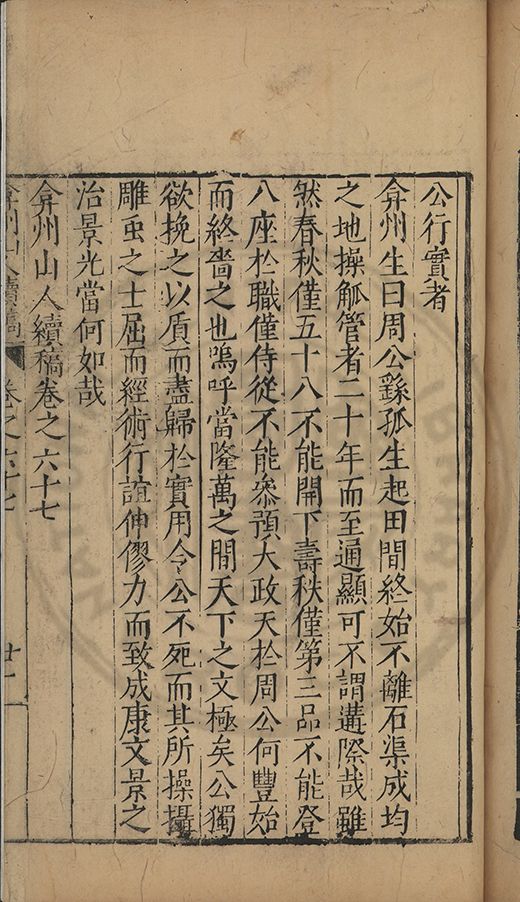 公行實者
弇州生曰周公繇孤生起田間終始不離石渠成均
之地操觚管者二十年而至通顯可不謂遘際哉雖
然春秋僅五十八不能開下壽秩僅第三品不能登
八座於職僅侍從不能叅預大政天於周公何豐始
而終嗇之也嗚呼當隆萬之間天下之文極矣公獨
欲挽之以質而盡歸於實用令公不死而其所操攝
雕虫之士屈而經術行誼伸僇力而致成康文景之
治景光當何如哉
弇州山人續稿卷之六十七
弇州山人續稿 卷之六十七 廿一